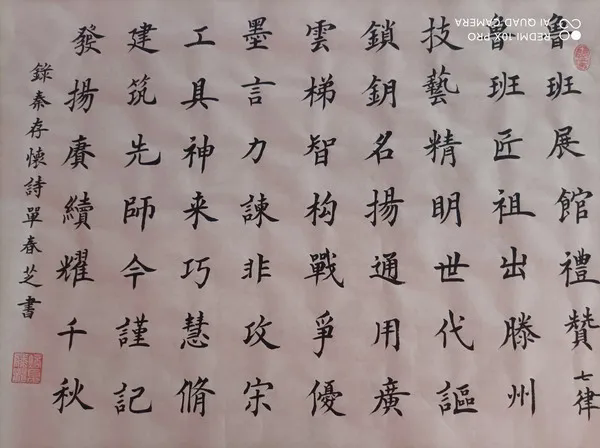 魯班展館禮贊 七律
魯班匠祖出滕州
技藝精明世代謳
鎖鈅名揚通用廣
雲梯智构戰爭優
墨言力諫非攻宋
工具神来巧慧脩
建筑先師今謹記
發揚賡續耀千秋
錄秦存懷詩單春芝書
REDMI 10X PRO
AI QUAD CAMERA